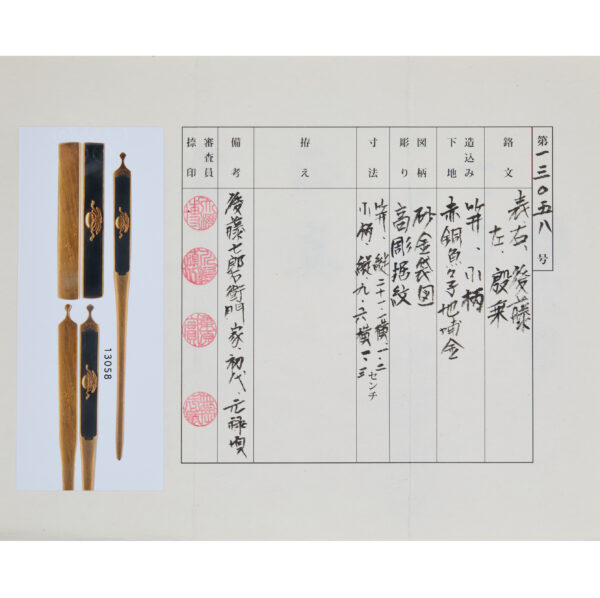 第一三〇五八号
銘文
表右、後藤
左、殷乗
造込み
笄、小柄
下地
赤銅魚々子地哺金
図柄
砂金袋図
彫り
高彫据紋
寸法
笄、縦二十一・二横、一・二
小柄、縦、九・六横一・三
センチ
拵え
備考
後藤七郎右衛門家、初代、元禄頃
審査員
捺印
13058